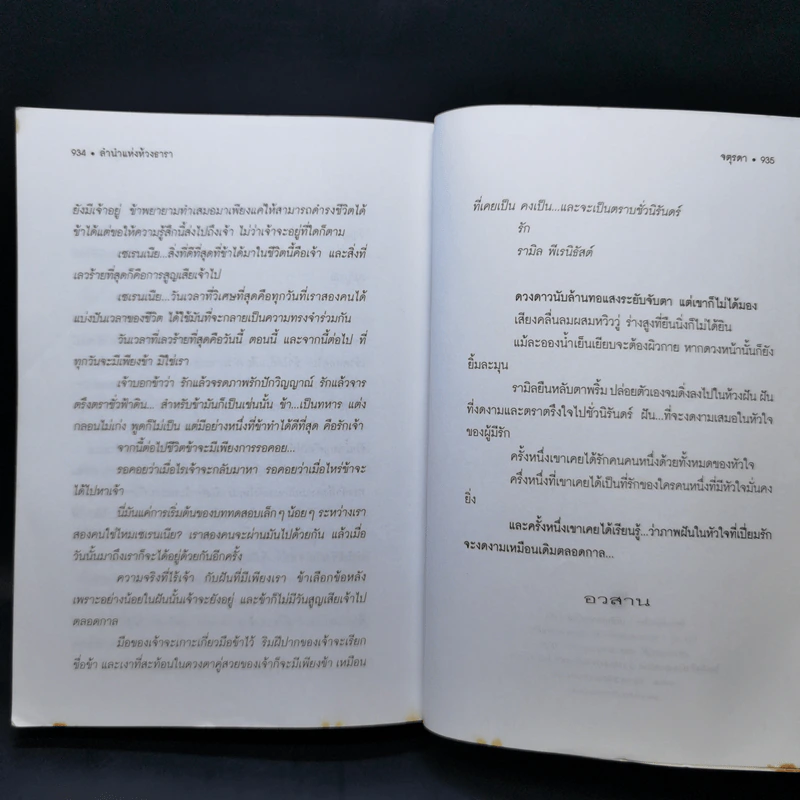 934 • ลำนำแห่งห้วงธารา
ยังมีเจ้าอยู่ ข้าพยายามทำเสมอมาเพียงแค่ให้สามารถดำรงชีวิตได้
ข้าได้แต่ขอให้ความรู้สึกนี้ส่งไปถึงเจ้า ไม่ว่าเจ้าจะอยู่ที่ใดก็ตาม
เซเรนเนีย...สิ่งที่ดีที่สุดที่ข้าได้มาในชีวิตนี้คือเจ้า และสิ่งที่
เลวร้ายที่สุดก็คือการสูญเสียเจ้าไป
เซเรนเนีย...วันเวลาที่วิเศษที่สุดคือทุกวันที่เราสองคนได้
แบ่งปันเวลาของชีวิต ได้ใช้มันที่จะกลายเป็นความทรงจำร่วมกัน
วันเวลาที่เลวร้ายที่สุดคือวันนี้ ตอนนี้ และจากนี้ต่อไป ที่
ทุกวันจะมีเพียงข้า มิใช่เรา
เจ้าบอกข้าว่า รักแล้วจรดภาพรักปักวิญญาณ์ รักแล้วจาร
ตรึงตราชั่วฟ้าดิน... สำหรับข้ามันก็เป็นเช่นนั้น ข้า...เป็นทหาร แต่ง
กลอนไม่เก่ง พูดก็ไม่เป็น แต่มีอย่างหนึ่งที่ข้าทำได้ดีที่สุด คือรักเจ้า
จากนี้ต่อไปชีวิตข้าจะมีเพียงการรอคอย...
รอคอยว่าเมื่อไรเจ้าจะกลับมาหา รอคอยว่าเมื่อไหร่ข้าจะ
ได้ไปหาเจ้า
นี่มันแค่การเริ่มต้นของบททดสอบเล็กๆ น้อยๆ ระหว่างเรา
สองคนใช่ไหมเซเรนเนีย? เราสองคนจะผ่านมันไปด้วยกัน แล้วเมื่อ
วันนั้นมาถึงเราก็จะได้อยู่ด้วยกันอีกครั้ง
ความจริงที่ไร้เจ้า กับฝันที่มีเพียงเรา ข้าเลือกข้อหลัง
เพราะอย่างน้อยในฝันนั้นเจ้าจะยังอยู่ และข้าก็ไม่มีวันสูญเสียเจ้าไป
ตลอดกาล
มือของเจ้าจะเกาะเกี่ยวมือข้าไว้ ริมฝีปากของเจ้าจะเรียก
ชื่อข้า และเงาที่สะท้อนในดวงตาคู่สวยของเจ้าก็จะมีเพียงข้า เหมือน
จตุรดา • 935
ที่เคยเป็น คงเป็น...และจะเป็นตราบชั่วนิรันดร์
รัก
รามิล พีเรนิธัสต์
ดวงดาวนับล้านทอแสงระยับจับตา แต่เขาก็ไม่ได้มอง
เสียงคลื่นลมผสมหวิววู่ ร่างสูงที่ยืนนิ่งก็ไม่ได้ยิน
แม้ละอองน้ำเย็นเยียบจะต้องผิวกาย หากดวงหน้านั้นก็ยัง
ยิ้มละมุน
รามิลยืนหลับตาพริ้ม ปล่อยตัวเองจมดิ่งลงไปในห้วงฝัน ฝัน
ที่งดงามและตราตรึงใจไปชั่วนิรันดร์ ฝัน...ที่จะงดงามเสมอในหัวใจ
ของผู้มีรัก
ครั้งหนึ่งเขาเคยได้รักคนคนหนึ่งด้วยทั้งหมดของหัวใจ
ครั้งหนึ่งที่เขาเคยได้เป็นที่รักของใครคนหนึ่งที่มีหัวใจมั่นคง
ยิ่ง
และครั้งหนึ่งเขาเคยได้เรียนรู้...ว่าภาพฝันในหัวใจที่เปี่ยมรัก
จะงดงามเหมือนเดิมตลอดกาล...
อวสาน